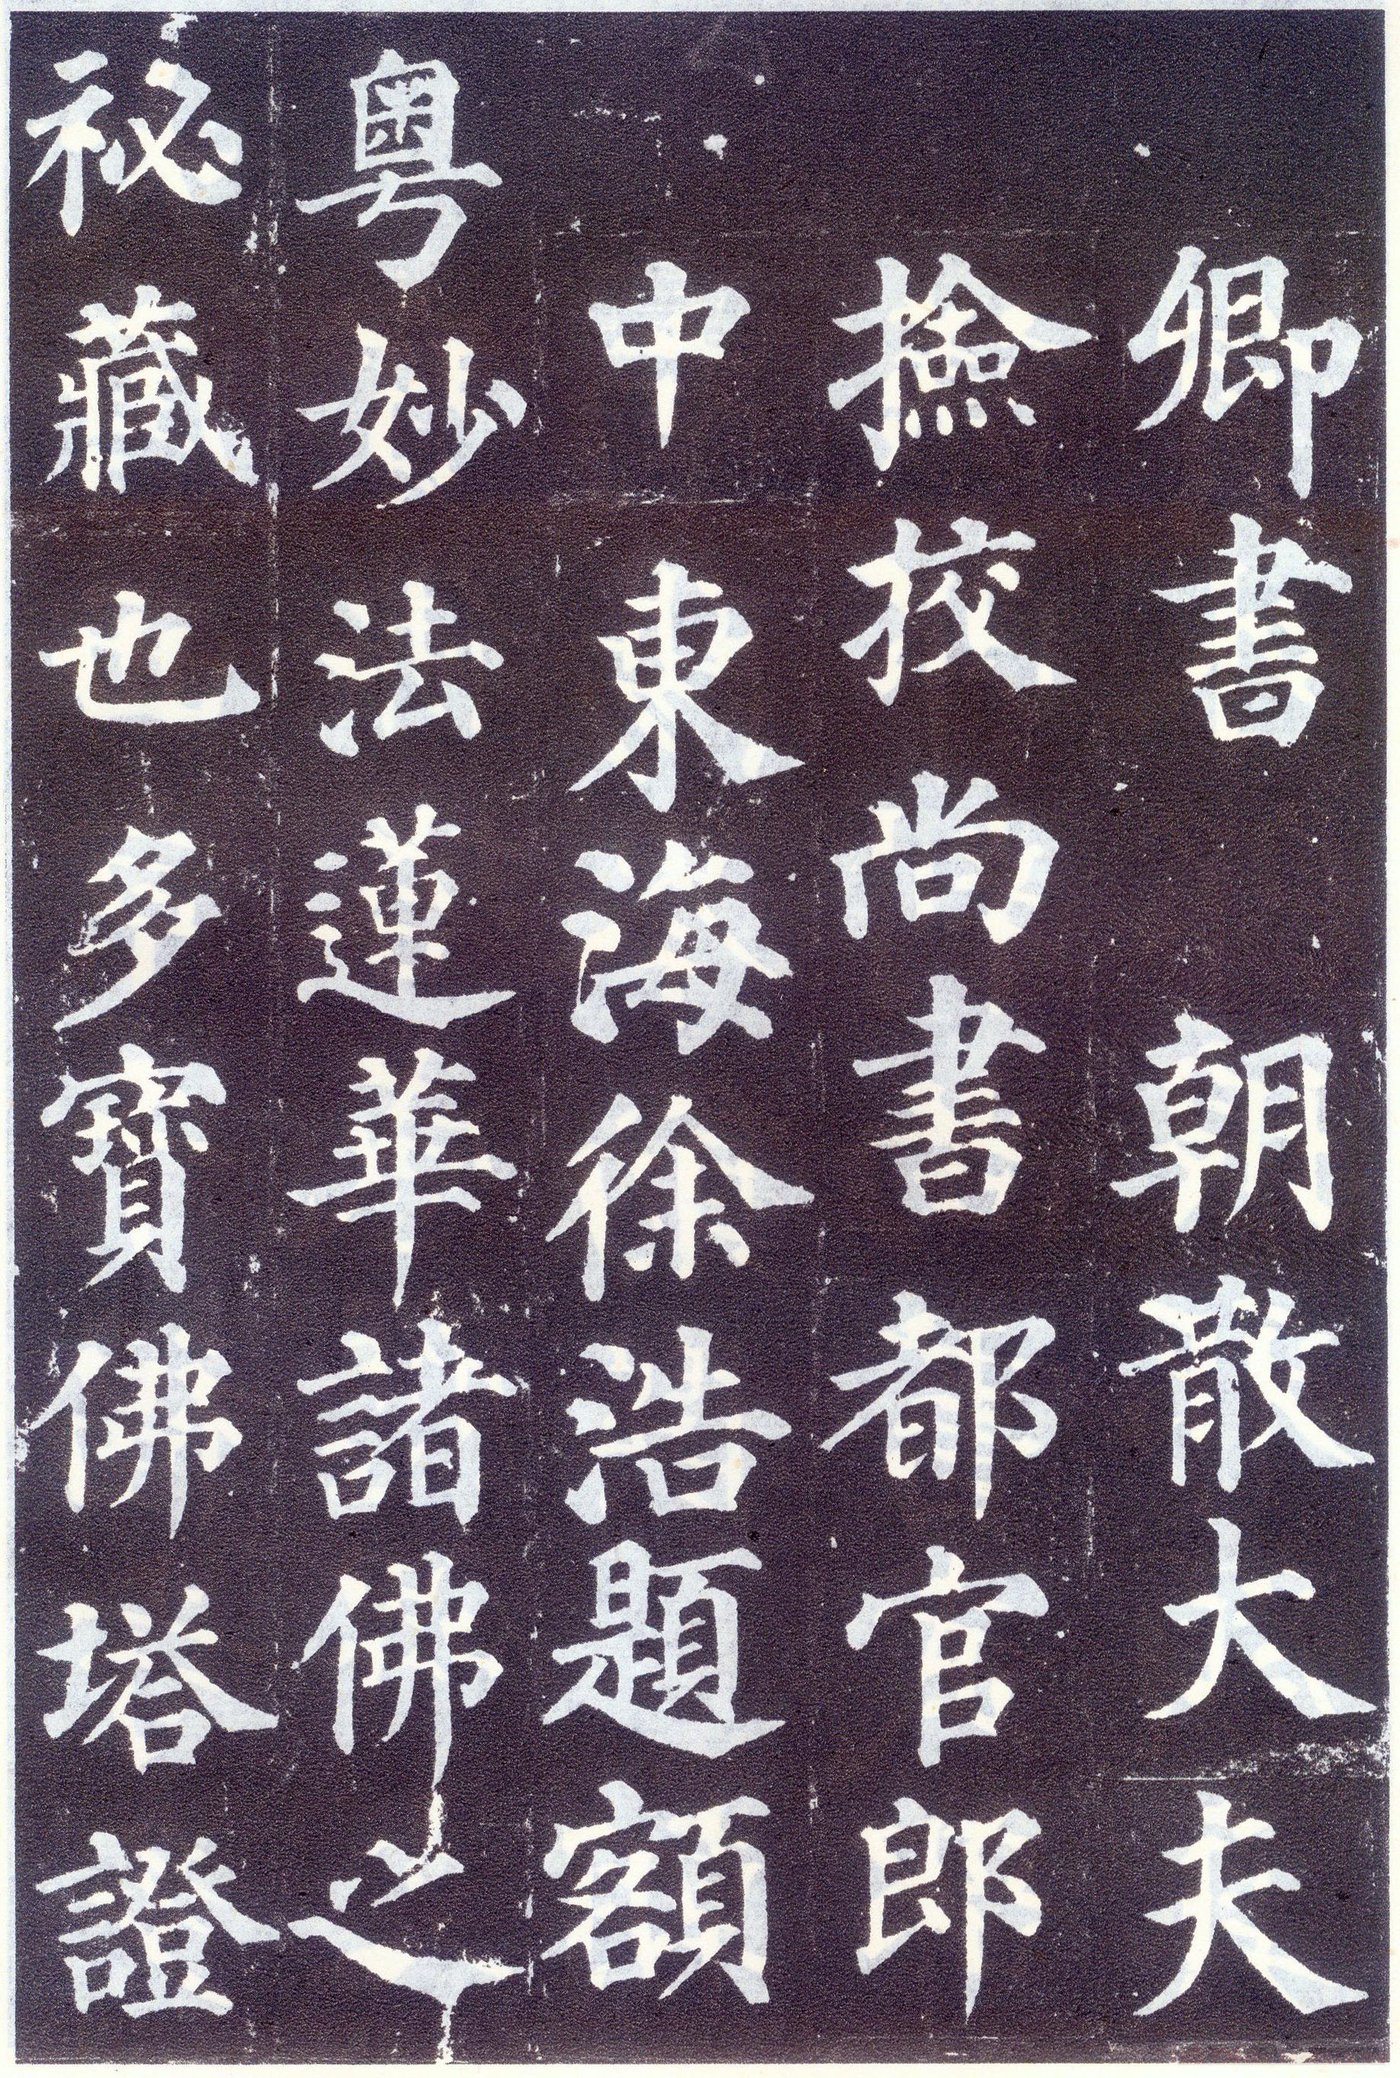 卿書　朝散大夫
撿挍尚書都官郎
中東海徐浩題額
粵妙法蓮華諸佛之
祕藏也多寶佛塔證